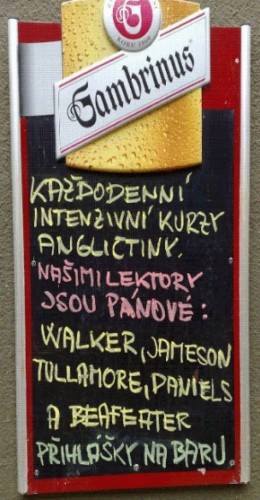 G
Gambrinus
KAŽDODENNÍ
INTENZIVNÍ KURZY
ANGLICTINY.
NAŠIMI LEKTORY
JSOU PÁNOVÉ:
WALKER, JAMESON
TULLAMORE, DANIELS
A BEAFEATER
PŘIHLÁŠKY NA BARU.